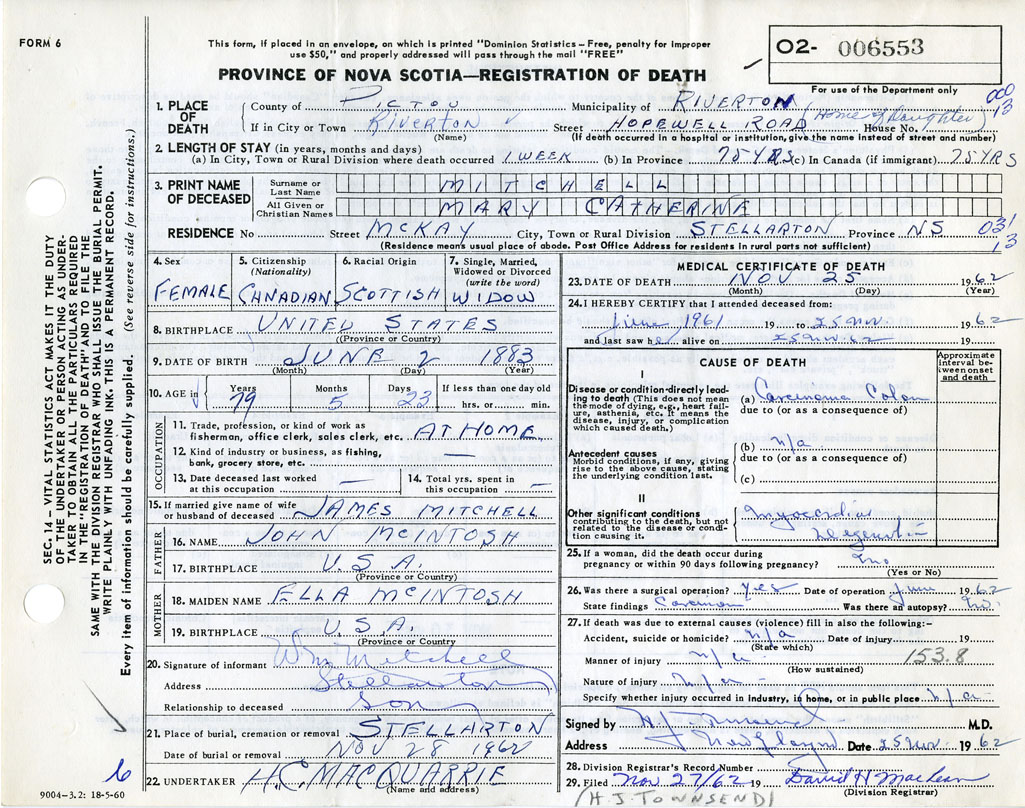 FORM 6
This form, if placed in an envelope, on which is printed "Dominion Statistics – Free, penalty for improper
use $50," and properly addressed will pass through the mail "FREE"
O2- 006553
PROVINCE OF NOVA SCOTIA—REGISTRATION OF DEATH
For use of the Department only
000
13
1. PLACE OF DEATH
County of PICTOU Municipality of RIVERTON
If in City or Town RIVERTON Street HOPEWELL ROAD (Home of Daughter) House No.
(Name) (If death occurred in a hospital or institution, give the name instead of street and number)
2. LENGTH OF STAY (in years, months and days)
(a) In City, Town or Rural Division where death occurred 1 WEEK (b) In Province 75 YRS (c) In Canada (if immigrant) 75 YRS
3. PRINT NAME OF DECEASED
Surname or Last Name MITCHELL
All Given or Christian Names MARY CATHERINE
RESIDENCE No Street MCKAY City, Town or Rural Division STELLARTON Province NS
031
13
(Residence means usual place of abode. Post Office Address for residents in rural parts not sufficient)
4. Sex
FEMALE
5. Citizenship (Nationality)
CANADIAN
6. Racial Origin
SCOTTISH
7. Single, Married, Widowed or Divorced (write the word)
WIDOW
8. BIRTHPLACE UNITED STATES
(Province or Country)
9. DATE OF BIRTH JUNE 2 1883
(Month) (Day) (Year)
10. AGE in Years 79 Months 5 Days 23 If less than one day old
hrs. or min.
OCCUPATION
11. Trade, profession, or kind of work as
fisherman, office clerk, sales clerk, etc. AT HOME
12. Kind of industry or business, as fishing,
bank, grocery store, etc. —
13. Date deceased last worked
at this occupation —
14. Total yrs. spent in
this occupation —
15. If married give name of wife
or husband of deceased JAMES MITCHELL
FATHER
16. NAME JOHN MCINTOSH
17. BIRTHPLACE U.S.A.
(Province or Country)
MOTHER
18. MAIDEN NAME ELLA MCINTOSH
19. BIRTHPLACE U.S.A.
(Province or Country)
20. Signature of informant Wm Mitchell
Address Stellarton
Relationship to deceased Son
21. Place of burial, cremation or removal STELLARTON
Date of burial or removal NOV 28 1962
22. UNDERTAKER H.C. MACQUARRIE
(Name and address)
MEDICAL CERTIFICATE OF DEATH
23. DATE OF DEATH NOV 25 1962
(Month) (Day) (Year)
24. I HEREBY CERTIFY that I attended deceased from:
June 1961 19 to 25 Nov. 1962
and last saw her alive on 25 Nov. 62
CAUSE OF DEATH
Approximate interval between onset and death
I
Disease or condition directly leading to death (This does not mean the mode of dying, e.g., heart failure, asthenia, etc. It means the disease, injury, or complication which caused death.)
(a) Carcinoma Colon
due to (or as a consequence of)
Antecedent causes
Morbid conditions, if any, giving rise to the above cause, stating the underlying condition last.
(b) n/a
due to (or as a consequence of)
(c)
II
Other significant conditions
contributing to the death, but not related to the disease or condition causing it.
Myocardial
Degeneration
25. If a woman, did the death occur during
pregnancy or within 90 days following pregnancy? no
(Yes or No)
26. Was there a surgical operation? Yes Date of operation June 1962
State findings Carcinoma Was there an autopsy? No.
27. If death was due to external causes (violence) fill in also the following:-
Accident, suicide or homicide? n/a Date of injury 19
(State which)
Manner of injury n/a 153.8
(How sustained)
Nature of injury n/a
Specify whether injury occurred in industry, in home, or in public place n/a
Signed by H J Townsend M.D.
Address New Glasgow Date 25 Nov 1962
28. Division Registrar's Record Number
29. Filed Nov 27/62 19 David H MacLean
(Division Registrar)
(H. J. TOWNSEND)
SEC. 14 - VITAL STATISTICS ACT MAKES IT THE DUTY
OF THE UNDERTAKER OR PERSON ACTING AS UNDER-
TAKER TO OBTAIN ALL THE PARTICULARS REQUIRED
IN THE "REGISTRATION OF DEATH" AND TO FILE THE
SAME WITH THE DIVISION REGISTRAR WHO SHALL ISSUE THE BURIAL PERMIT.
WRITE PLAINLY WITH UNFADING INK - THIS IS A PERMANENT RECORD.
Every item of information should be carefully supplied. (See reverse side for instructions.)
6
9004-3.2: 18-5-60